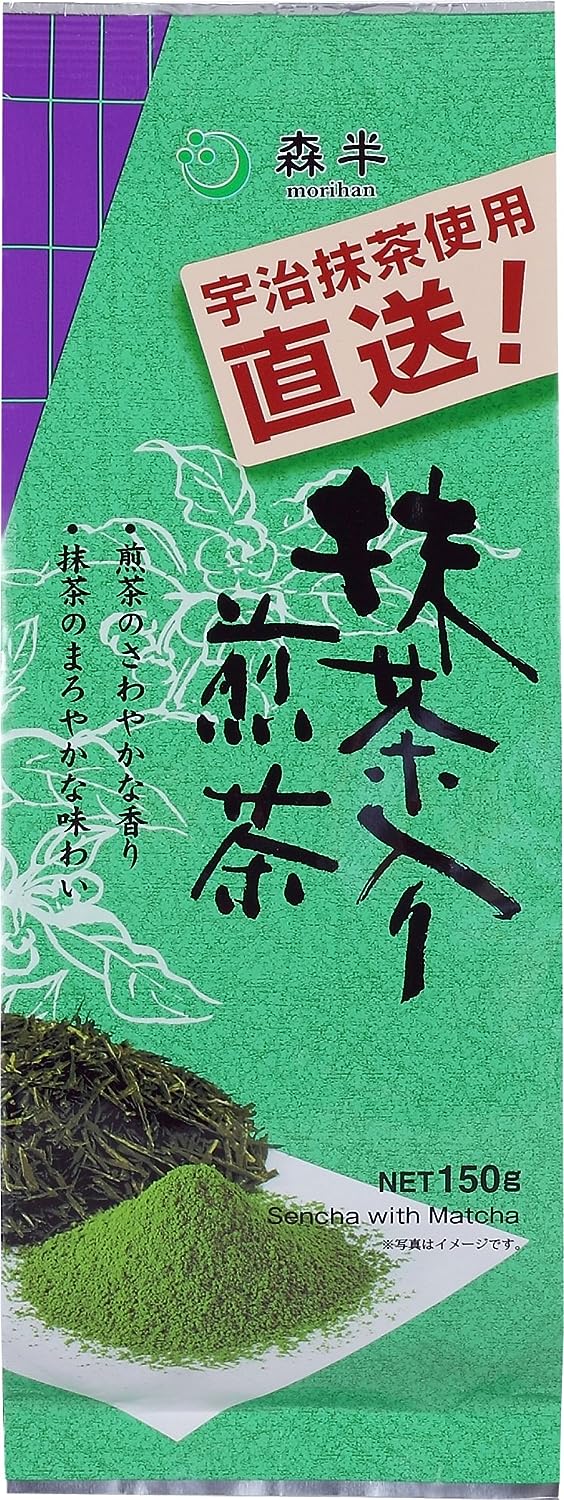 森半
morihan
宇治抹茶使用
直送!
抹茶入り
煎茶
・煎茶のさわやかな香り
・抹茶のまろやかな味わい
NET150g
Sencha with Matcha
※写真はイメージです。